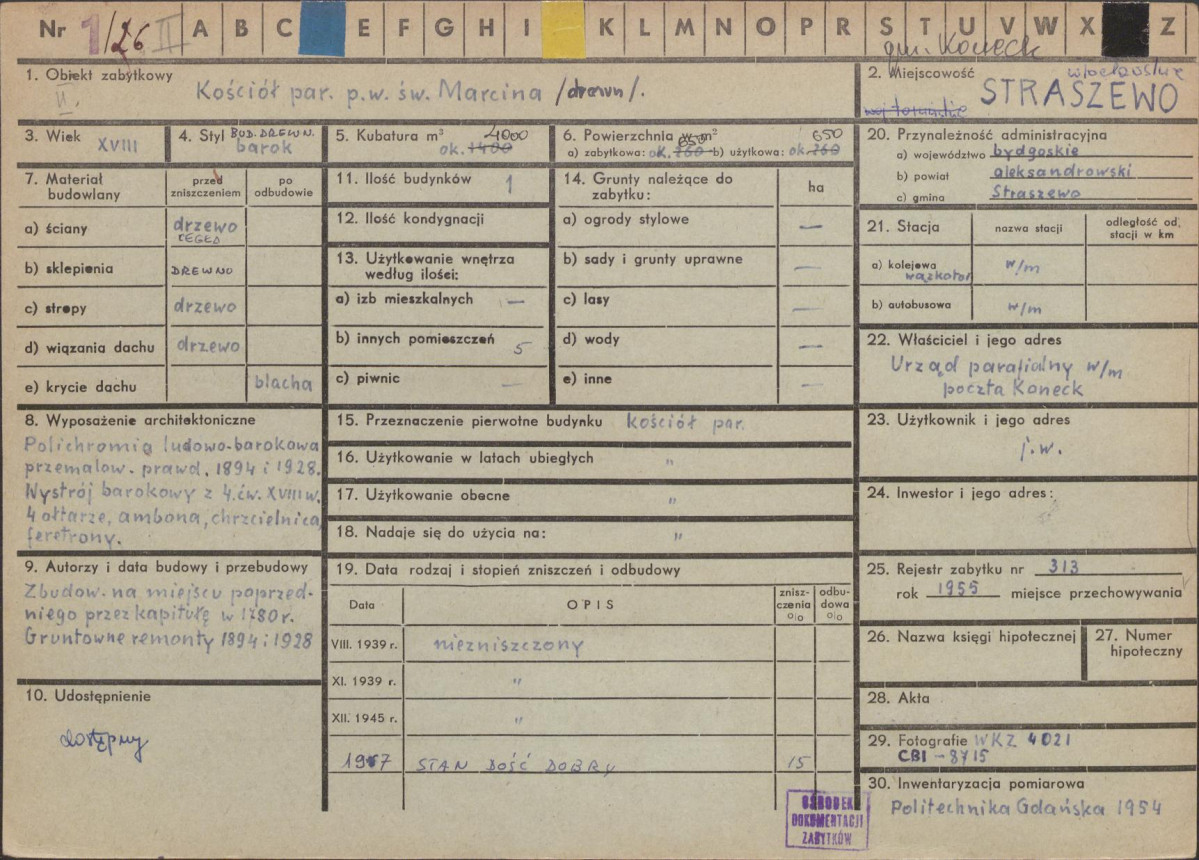 Nr 1/26 II A B C E F G H I K L M N O P R S T U V W X Z
gm. Koneck
1. Obiekt zabytkowy
II.
Kościół par. p.w. św. Marcina /drewn/.
2. Miejscowość
włocławskie
woj. toruńskie
STRASZEWO
3. Wiek
XVIII
4. Styl BUD. DREWN.
barok
5. Kubatura m³ 4000
ok. 1400
6. Powierzchnia w m²
a) zabytkowa: ok. 260 650 b) użytkowa: ok. 260 650
20. Przynależność administracyjna
a) województwo bydgoskie
b) powiat aleksandrowski
c) gmina Straszewo
7. Materiał budowlany
przed zniszczeniem
po odbudowie
a) ściany drzewo
CEGŁA
b) sklepienia DREWNO
c) stropy drzewo
d) wiązania dachu drzewo
e) krycie dachu blacha
11. Ilość budynków 1
12. Ilość kondygnacji
13. Użytkowanie wnętrza
według ilości:
a) izb mieszkalnych —
b) innych pomieszczeń 5
c) piwnic —
14. Grunty należące do
zabytku:
ha
a) ogrody stylowe —
b) sady i grunty uprawne —
c) lasy —
d) wody —
e) inne —
21. Stacja
nazwa stacji
odległość od stacji w km
a) kolejowa w/m
wązkotor
b) autobusowa w/m
22. Właściciel i jego adres
Urząd parafialny w/m
poczta Koneck
8. Wyposażenie architektoniczne
Polichromia ludowo-barokowa
przemalow. prawd. 1894 i 1928.
Wystrój barokowy z 4. ćw. XVIII w.
4 ołtarze, ambona, chrzcielnica,
feretrony.
15. Przeznaczenie pierwotne budynku kościół par.
16. Użytkowanie w latach ubiegłych "
17. Użytkowanie obecne "
18. Nadaje się do użycia na: "
23. Użytkownik i jego adres
j.w.
24. Inwestor i jego adres:
9. Autorzy i data budowy i przebudowy
Zbudow. na miejscu poprzed-
niego przez kapitułę w 1780 r.
Gruntowne remonty 1894 i 1928
10. Udostępnienie
dostępny
19. Data rodzaj i stopień zniszczeń i odbudowy
Data
OPIS
znisz-
czenia
o/o
odbu-
dowa
o/o
VIII. 1939 r. niezniszczony
XI. 1939 r. "
XII. 1945 r. "
1967 STAN DOŚĆ DOBRY 15
25. Rejestr zabytku nr 313
rok 1955 miejsce przechowywania
26. Nazwa księgi hipotecznej
27. Numer
hipoteczny
28. Akta
29. Fotografie WKZ 4021
CBI - 8715
30. Inwentaryzacja pomiarowa
Politechnika Gdańska 1954
OŚRODEK
DOKUMENTACJI
ZABYTKÓW